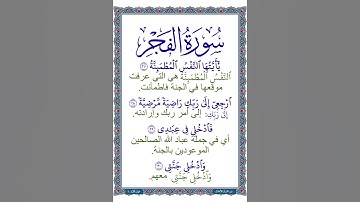 سُورَةُ الفَجْرِ
يَٰٓأَيَّتُهَا ٱلنَّفْسُ ٱلْمُطْمَئِنَّةُ ٢٧
ٱلنَّفْسُ ٱلْمُطْمَئِنَّةُ هي التي عرفت
موقعها في الجنة فاطمأنت.
ٱرْجِعِىٓ إِلَىٰ رَبِّكِ رَاضِيَةً مَّرْضِيَّةً ٢٨
إِلَىٰ رَبِّكِ: إلى أمر ربك وإرادته.
فَٱدْخُلِى فِى عِبَٰدِى ٢٩
أي في جملة عباد الله الصالحين
الموعودين بالجنة.
وَٱدْخُلِى جَنَّتِى ٣٠
وَٱدْخُلِى جَنَّتِى معهم.